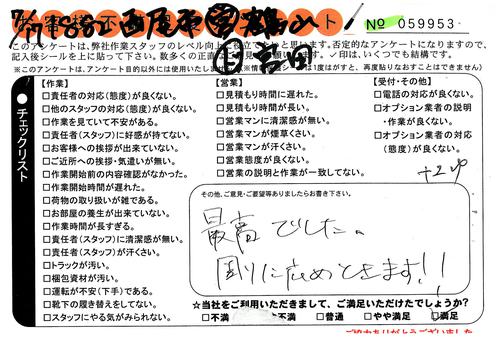 No 059953
このアンケートは、弊社作業スタッフのレベル向上に役立て
と思います。否定的なアンケートになりますので、
記入後シールを上に貼って下さい。
※このアンケートは、アンケート目的以外には使用いたしません
シールは1度はがすと、再度貼りなおすことはできません)
チェックリスト
【作業】
□責任者の対応(態度)が良くない。
□他のスタッフの対応(態度)が良くない。
□作業を見ていて不安がある。
□責任者(スタッフ)に好感が持てない。
□お客様への挨拶が出来ていない。
□ご近所への挨拶・気遣いが無い。
□作業開始前の内容確認がなかった。
□作業開始時間が遅れた。
□荷物の取り扱いが雑である。
□お部屋の養生が出来ていない。
□作業時間が長すぎる。
□責任者(スタッフ)に清潔感が無い。
□責任者(スタッフ)が汗くさい。
□トラックが汚い。
□梱包資材が汚い。
□運転が不安(下手)である。
□靴下の履き替えをしてない。
□スタッフにやる気がみられない。
【営業】
□見積もり時間に遅れた。
□見積もり時間が長い。
□営業マンに清潔感が無い。
□営業マンが煙草くさい。
□営業マンが汗くさい。
□営業態度が良くない。
□営業の説明と作業が一致してない。
【受付・その他】
□電話の対応が良くない。
□オプション業者の説明
・作業が良くない。
□オプション業者の対応
(態度)が良くない。
+2up
その他、ご意見・ご要望等ありましたらお書き下さい。
最高でした。
周りに広めときます!!
☆当社をご利用いただきまして、ご満足いただけたでしょうか?
□不満 不満 □普通 □やや満足 □満足
ご協力ありがとうございました